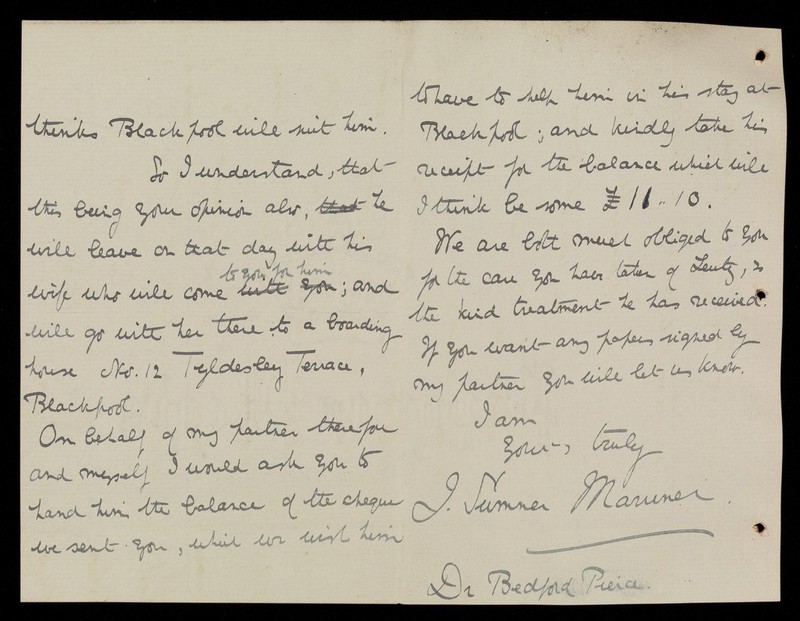 thinks Blackpool will suit him.
So I understand, that
this being your opinion also, that he
will leave on that day with his
to you for him
wife who will come with you; and
will go with her there to a boarding
house No. 12 Tyldesley Terrace,
Blackpool.
On behalf of my partner therefore
and myself I would ask you to
hand him the balance of the cheque
we sent you, which we wish him
to have to help him in his stay at
Blackpool; and kindly take his
receipt for the balance which will
I think be some £11..10.
We are both much obliged to you
for the care you have taken of Leutz, &
the kind treatment he has received.
If you want any papers signed by
my partner you will let us know.
I am
yours truly
J. Sumner Marriner.
Dr Bedford Pierce.